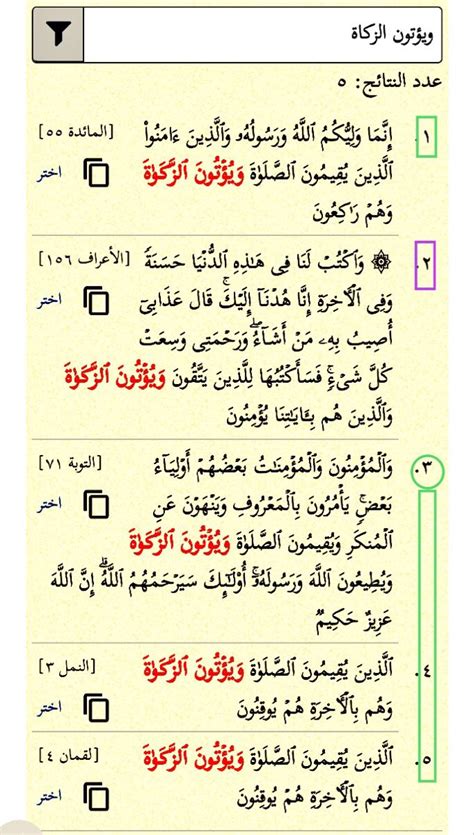 ويؤتون الزكاة
عدد النتائج: ٥
١. إِنَّمَا وَلِيُّكُمُ ٱللَّهُ وَرَسُولُهُۥ وَٱلَّذِينَ ءَامَنُوا۟ [المائدة ٥٥]
ٱلَّذِينَ يُقِيمُونَ ٱلصَّلَوٰةَ وَيُؤْتُونَ ٱلزَّكَوٰةَ اختر
وَهُمْ رَٰكِعُونَ
٢. ۞ وَٱكْتُبْ لَنَا فِى هَـٰذِهِ ٱلدُّنْيَا حَسَنَةً [الأعراف ١٥٦]
وَفِى ٱلْـَٔاخِرَةِ إِنَّا هُدْنَآ إِلَيْكَ ۚ قَالَ عَذَابِىٓ اختر
أُصِيبُ بِهِۦ مَنْ أَشَآءُ ۖ وَرَحْمَتِى وَسِعَتْ
كُلَّ شَىْءٍ ۚ فَسَأَكْتُبُهَا لِلَّذِينَ يَتَّقُونَ وَيُؤْتُونَ ٱلزَّكَوٰةَ
وَٱلَّذِينَ هُم بِـَٔايَـٰتِنَا يُؤْمِنُونَ
٣. وَٱلْمُؤْمِنُونَ وَٱلْمُؤْمِنَـٰتُ بَعْضُهُمْ أَوْلِيَآءُ [التوبة ٧١]
بَعْضٍ ۚ يَأْمُرُونَ بِٱلْمَعْرُوفِ وَيَنْهَوْنَ عَنِ اختر
ٱلْمُنكَرِ وَيُقِيمُونَ ٱلصَّلَوٰةَ وَيُؤْتُونَ ٱلزَّكَوٰةَ
وَيُطِيعُونَ ٱللَّهَ وَرَسُولَهُۥٓ ۚ أُو۟لَـٰٓئِكَ سَيَرْحَمُهُمُ ٱللَّهُ ۗ إِنَّ ٱللَّهَ
عَزِيزٌ حَكِيمٌ
٤. ٱلَّذِينَ يُقِيمُونَ ٱلصَّلَوٰةَ وَيُؤْتُونَ ٱلزَّكَوٰةَ [النمل ٣]
وَهُم بِٱلْـَٔاخِرَةِ هُمْ يُوقِنُونَ اختر
٥. ٱلَّذِينَ يُقِيمُونَ ٱلصَّلَوٰةَ وَيُؤْتُونَ ٱلزَّكَوٰةَ [لقمان ٤]
وَهُم بِٱلْـَٔاخِرَةِ هُمْ يُوقِنُونَ اختر